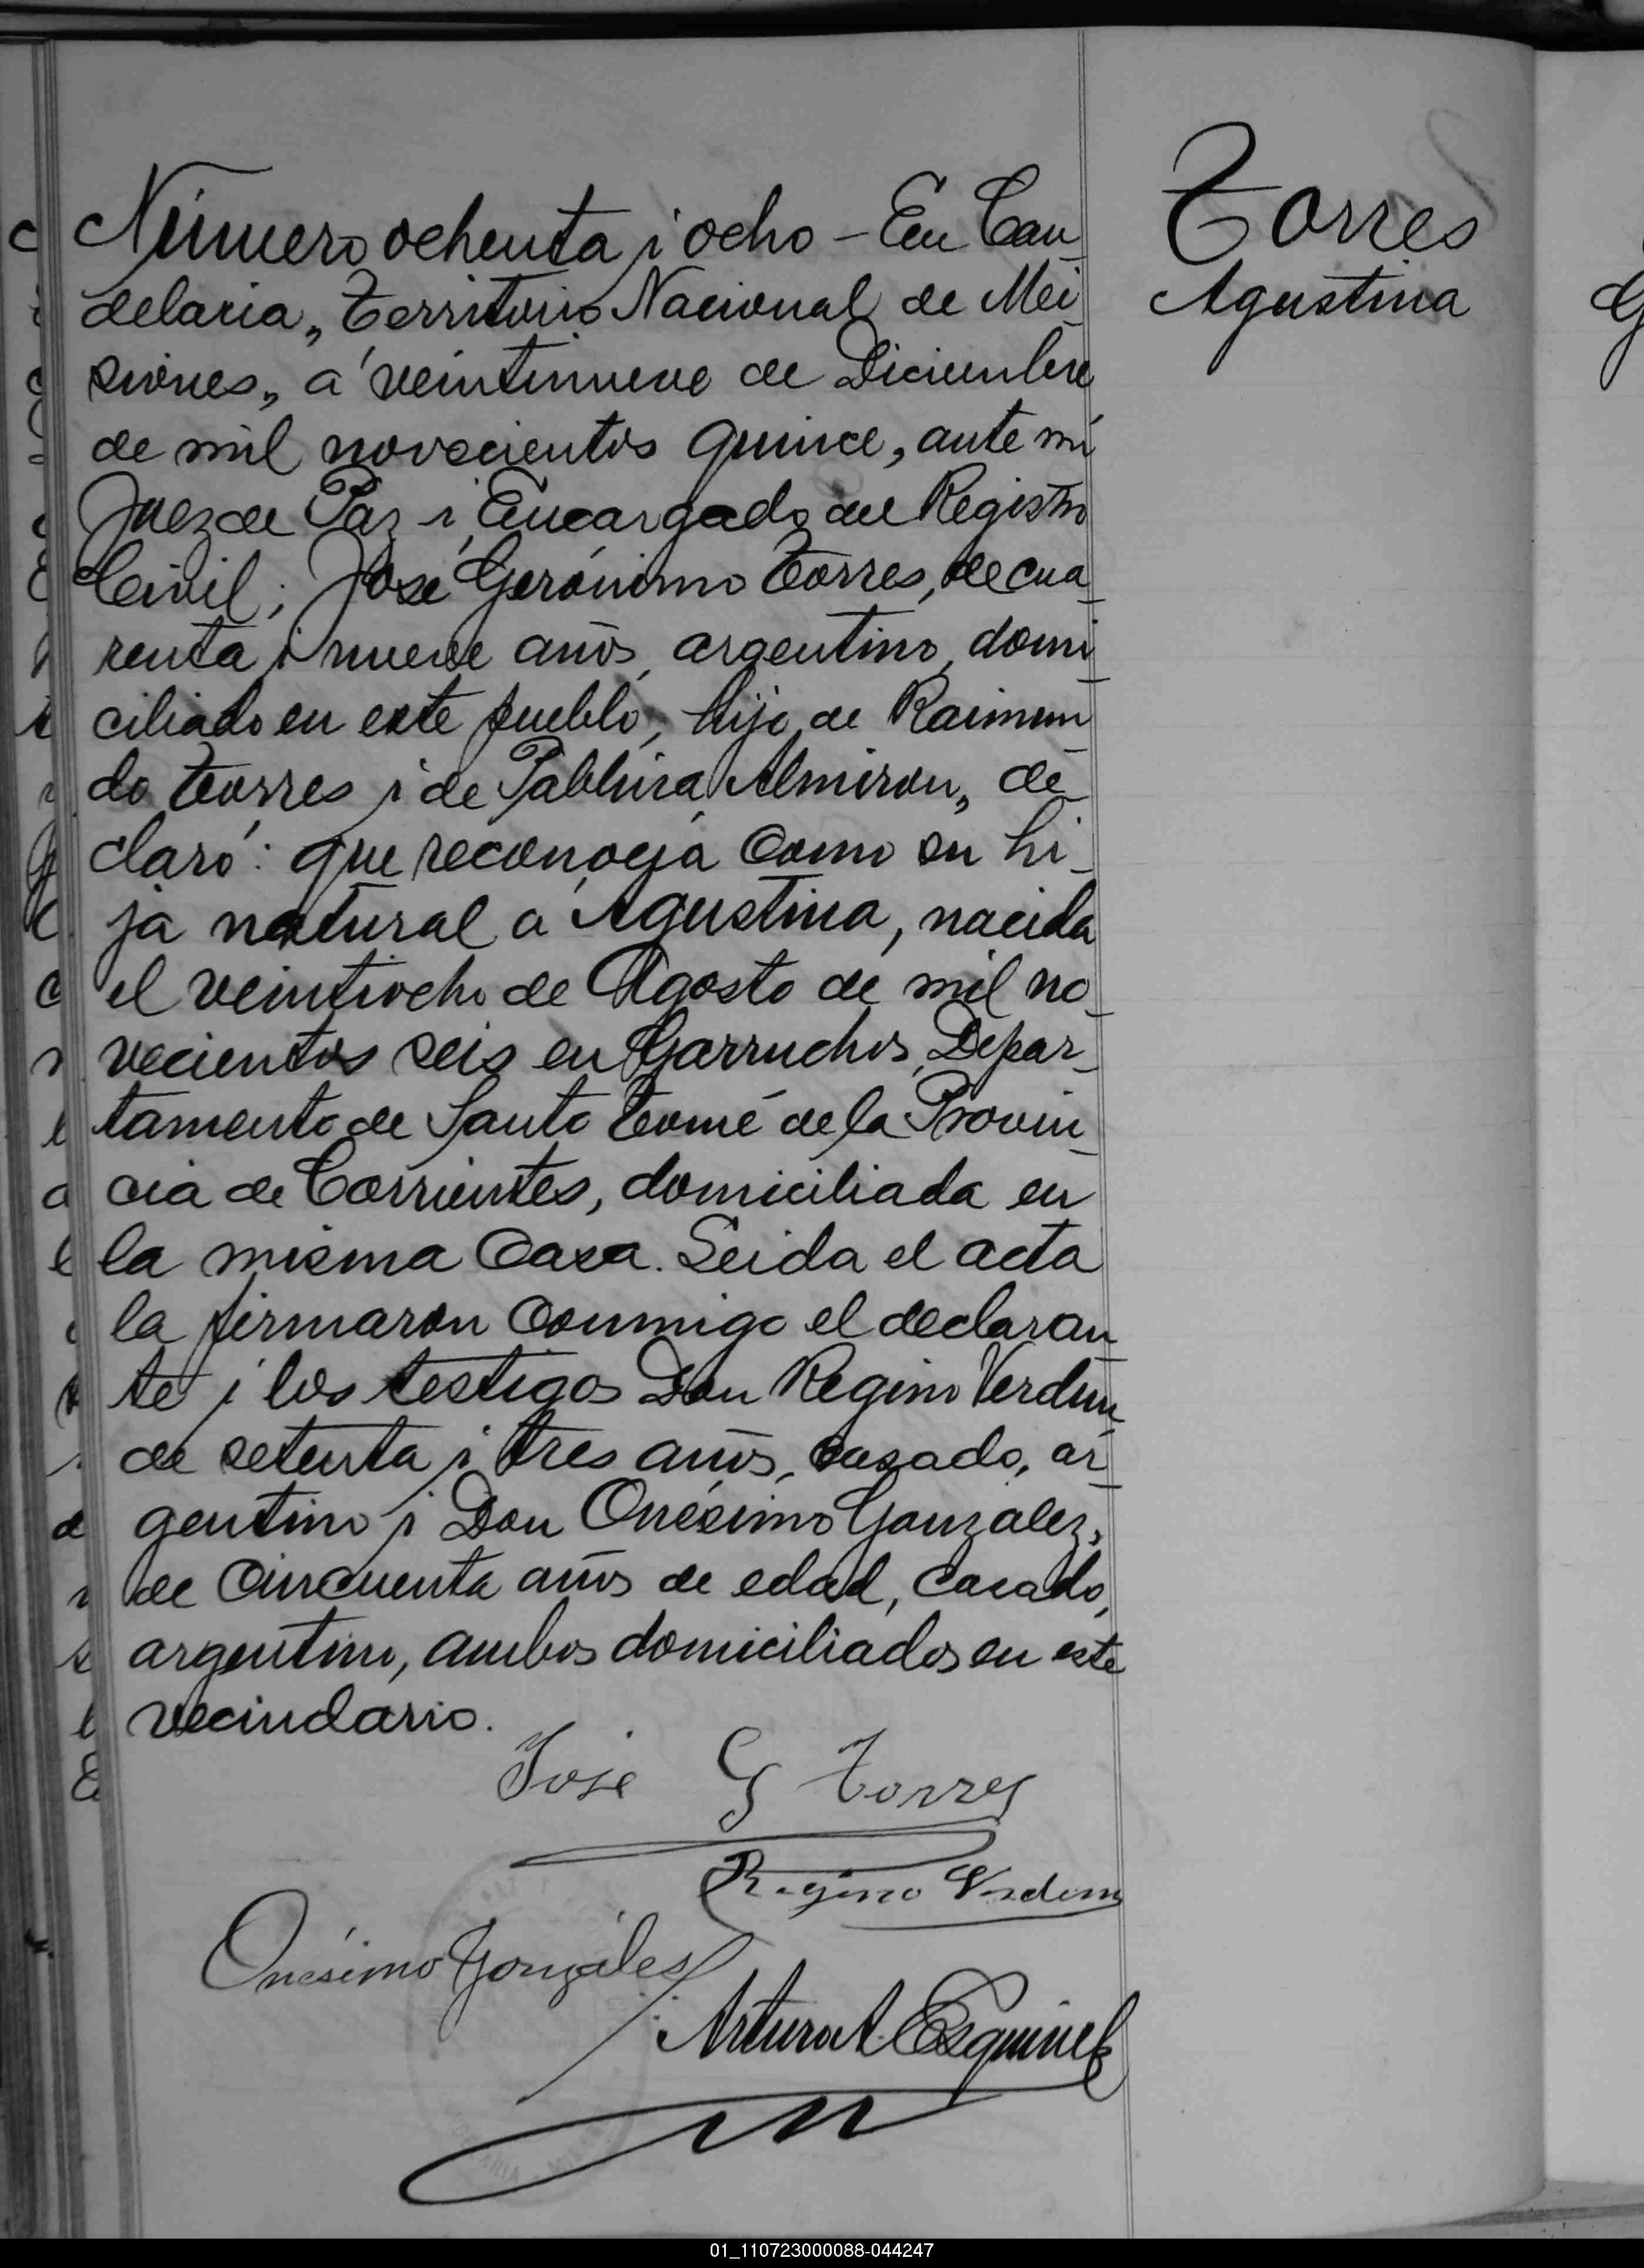 Torres
Agustina
Número ochenta i ocho – En Can
delaria, Territorio Nacional de Mi
siones, a veintinueve de Diciembre
de mil novecientos quince, ante mi
Juez de Paz i Encargado del Registro
Civil; José Gerónimo Torres, de cua
renta i nueve años, argentino, domi
ciliado en este pueblo, hijo de Raimun
do Torres i de Pablina Almiron, de
claró: que reconocia como su hi-
ja natural a Agustina, nacida
el veintiocho de Agosto de mil no
vecientos seis en Garruchos, Depar-
tamento de Santo Tomé de la Provin
cia de Corrientes, domiciliada en
la misma casa. Leida el acta
la firmaron conmigo el declaran
te i los testigos Don Regino Verdun
de setenta i tres años, casado, ar
gentino i Don Onésimo Gonzalez,
de cincuenta años de edad, casado,
argentino, ambos domiciliados en este
vecindario.
José G Torres
Regino Verdun
Onésimo Gonzáles
Arturo A. Esquivel
01_110723000088-044247